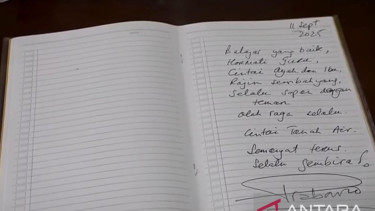 11 Sept
2025
Belajar yang baik,
Hormati guru,
Cintai Ayah dan Ibu.
Rajin sembahyang,
Selalu sopan dengan
teman
olah raga selalu.
Cintai Tanah Air.
Semangat terus
Selalu gembira
Prabowo
ANTARA